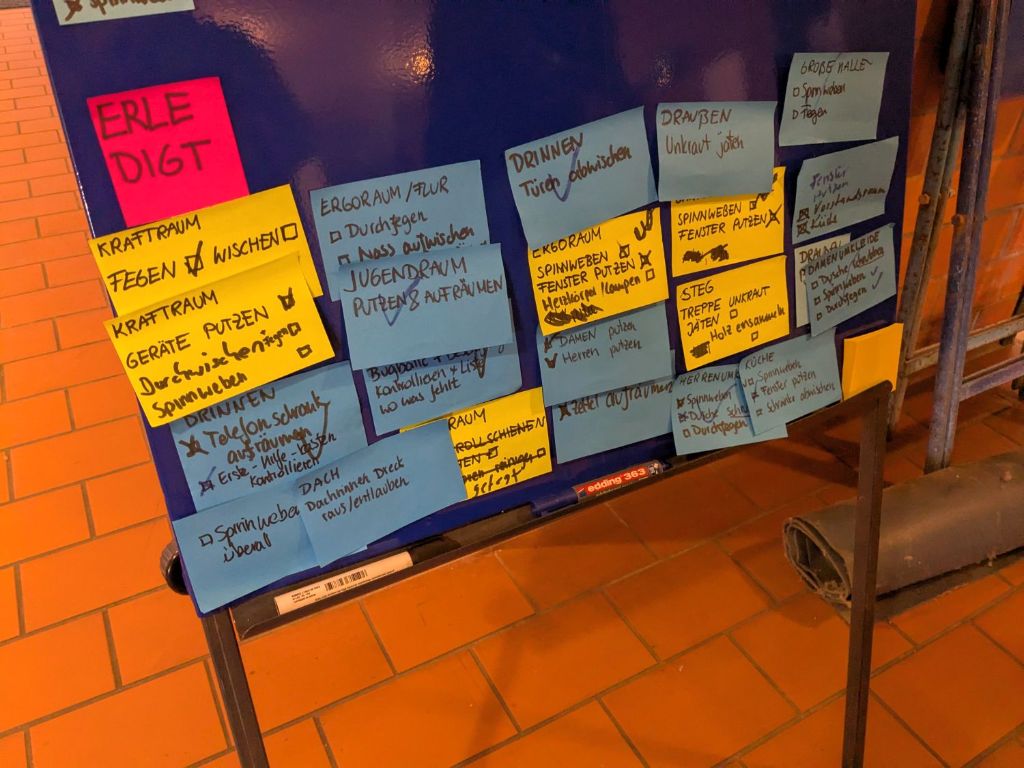 ERLE
DIGT
KRAFTRAUM
FEGEN WISCHEN
KRAFTRAUM
GERÄTE PUTZEN
Durchwischen
Spinnweben
DRINNEN
Telefonschrank
aufräumen
Erste-Hilfe-Kasten
kontrollieren
Spinnweben
überal
ERGORAUM/FLUR
Durchfegen
Nass aufwischen
JUGENDRAUM
PUTZEN & AUFRÄUMEN
Bugbälle
kontrollieren + Liste
wo was fehlt
RAUM
ROLLSCHIENEN
DACH
Dachrinnen Dreck
raus/entlauben
DRINNEN
Türen abwischen
ERGORAUM
SPINNWEBEN
FENSTER PUTZEN
Heizkörper/Lampen
DAMEN putzen
Herren putzen
Zettel aufräumen
DRAUẞEN
Unkraut jäten
SPINNWEBEN
FENSTER PUTZEN
STEG
TREPPE UNKRAUT
JÄTEN
Holz einsammeln
HERRENUM
Spinnweben
Dusche
Durchfegen
KÜCHE
Spinnweben
Fenster putzen
Schränke abwischen
GROẞE HALLE
Spinnweben
Fegen
Fenster
putzen
Vorstandsraum
Küche
DAMENUMKLEIDE
Dusche
Spinnweben
Durchfegen
edding 363